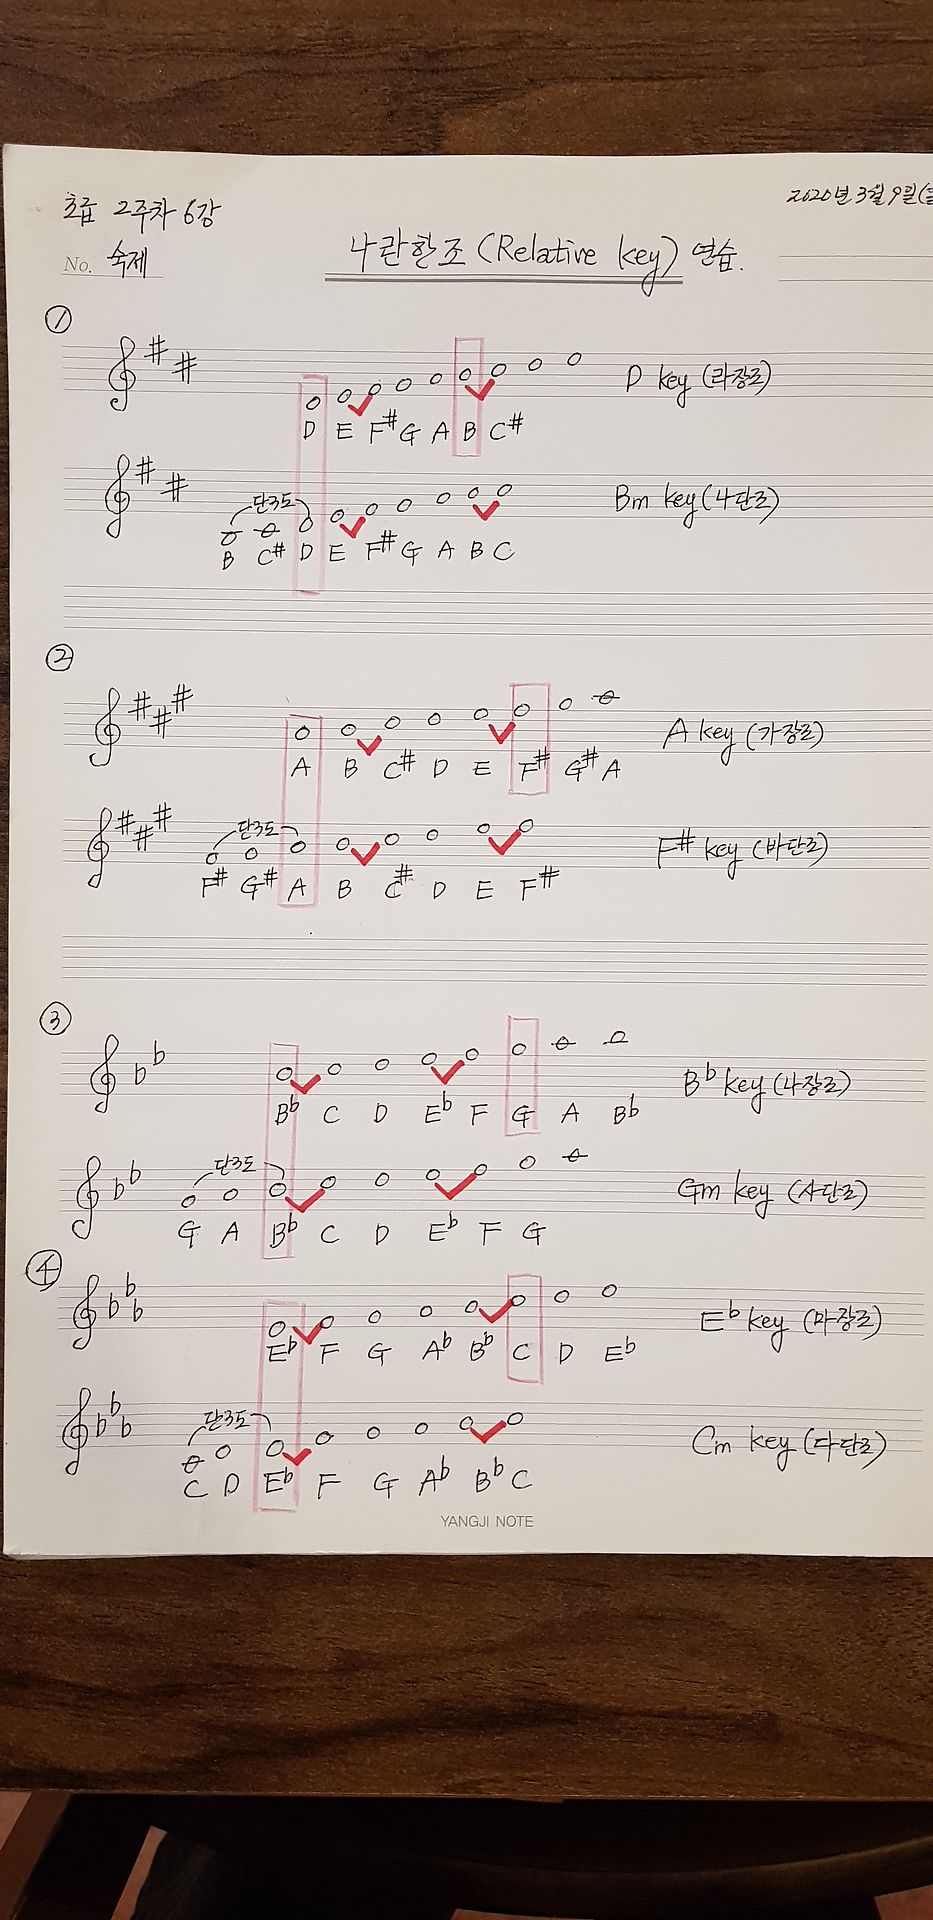 초급 2주차 6강
2020년 3월 9일(
No. 숙제
나란한조 (Relative key) 연습.
①
D key (라장조)
D E F# G A B C#
단3도
Bm key (나단조)
B C# D E F# G A B C
②
A key (가장조)
A B C# D E F# G# A
단3도
F# key (바단조)
F# G# A B C# D E F#
③
B♭ key (나장조)
B♭ C D E♭ F G A B♭
단3도
Gm key (사단조)
G A B♭ C D E♭ F G
④
E♭ key (마장조)
E♭ F G A♭ B♭ C D E♭
단3도
Cm key (다단조)
C D E♭ F G A♭ B♭ C
YANGJI NOTE